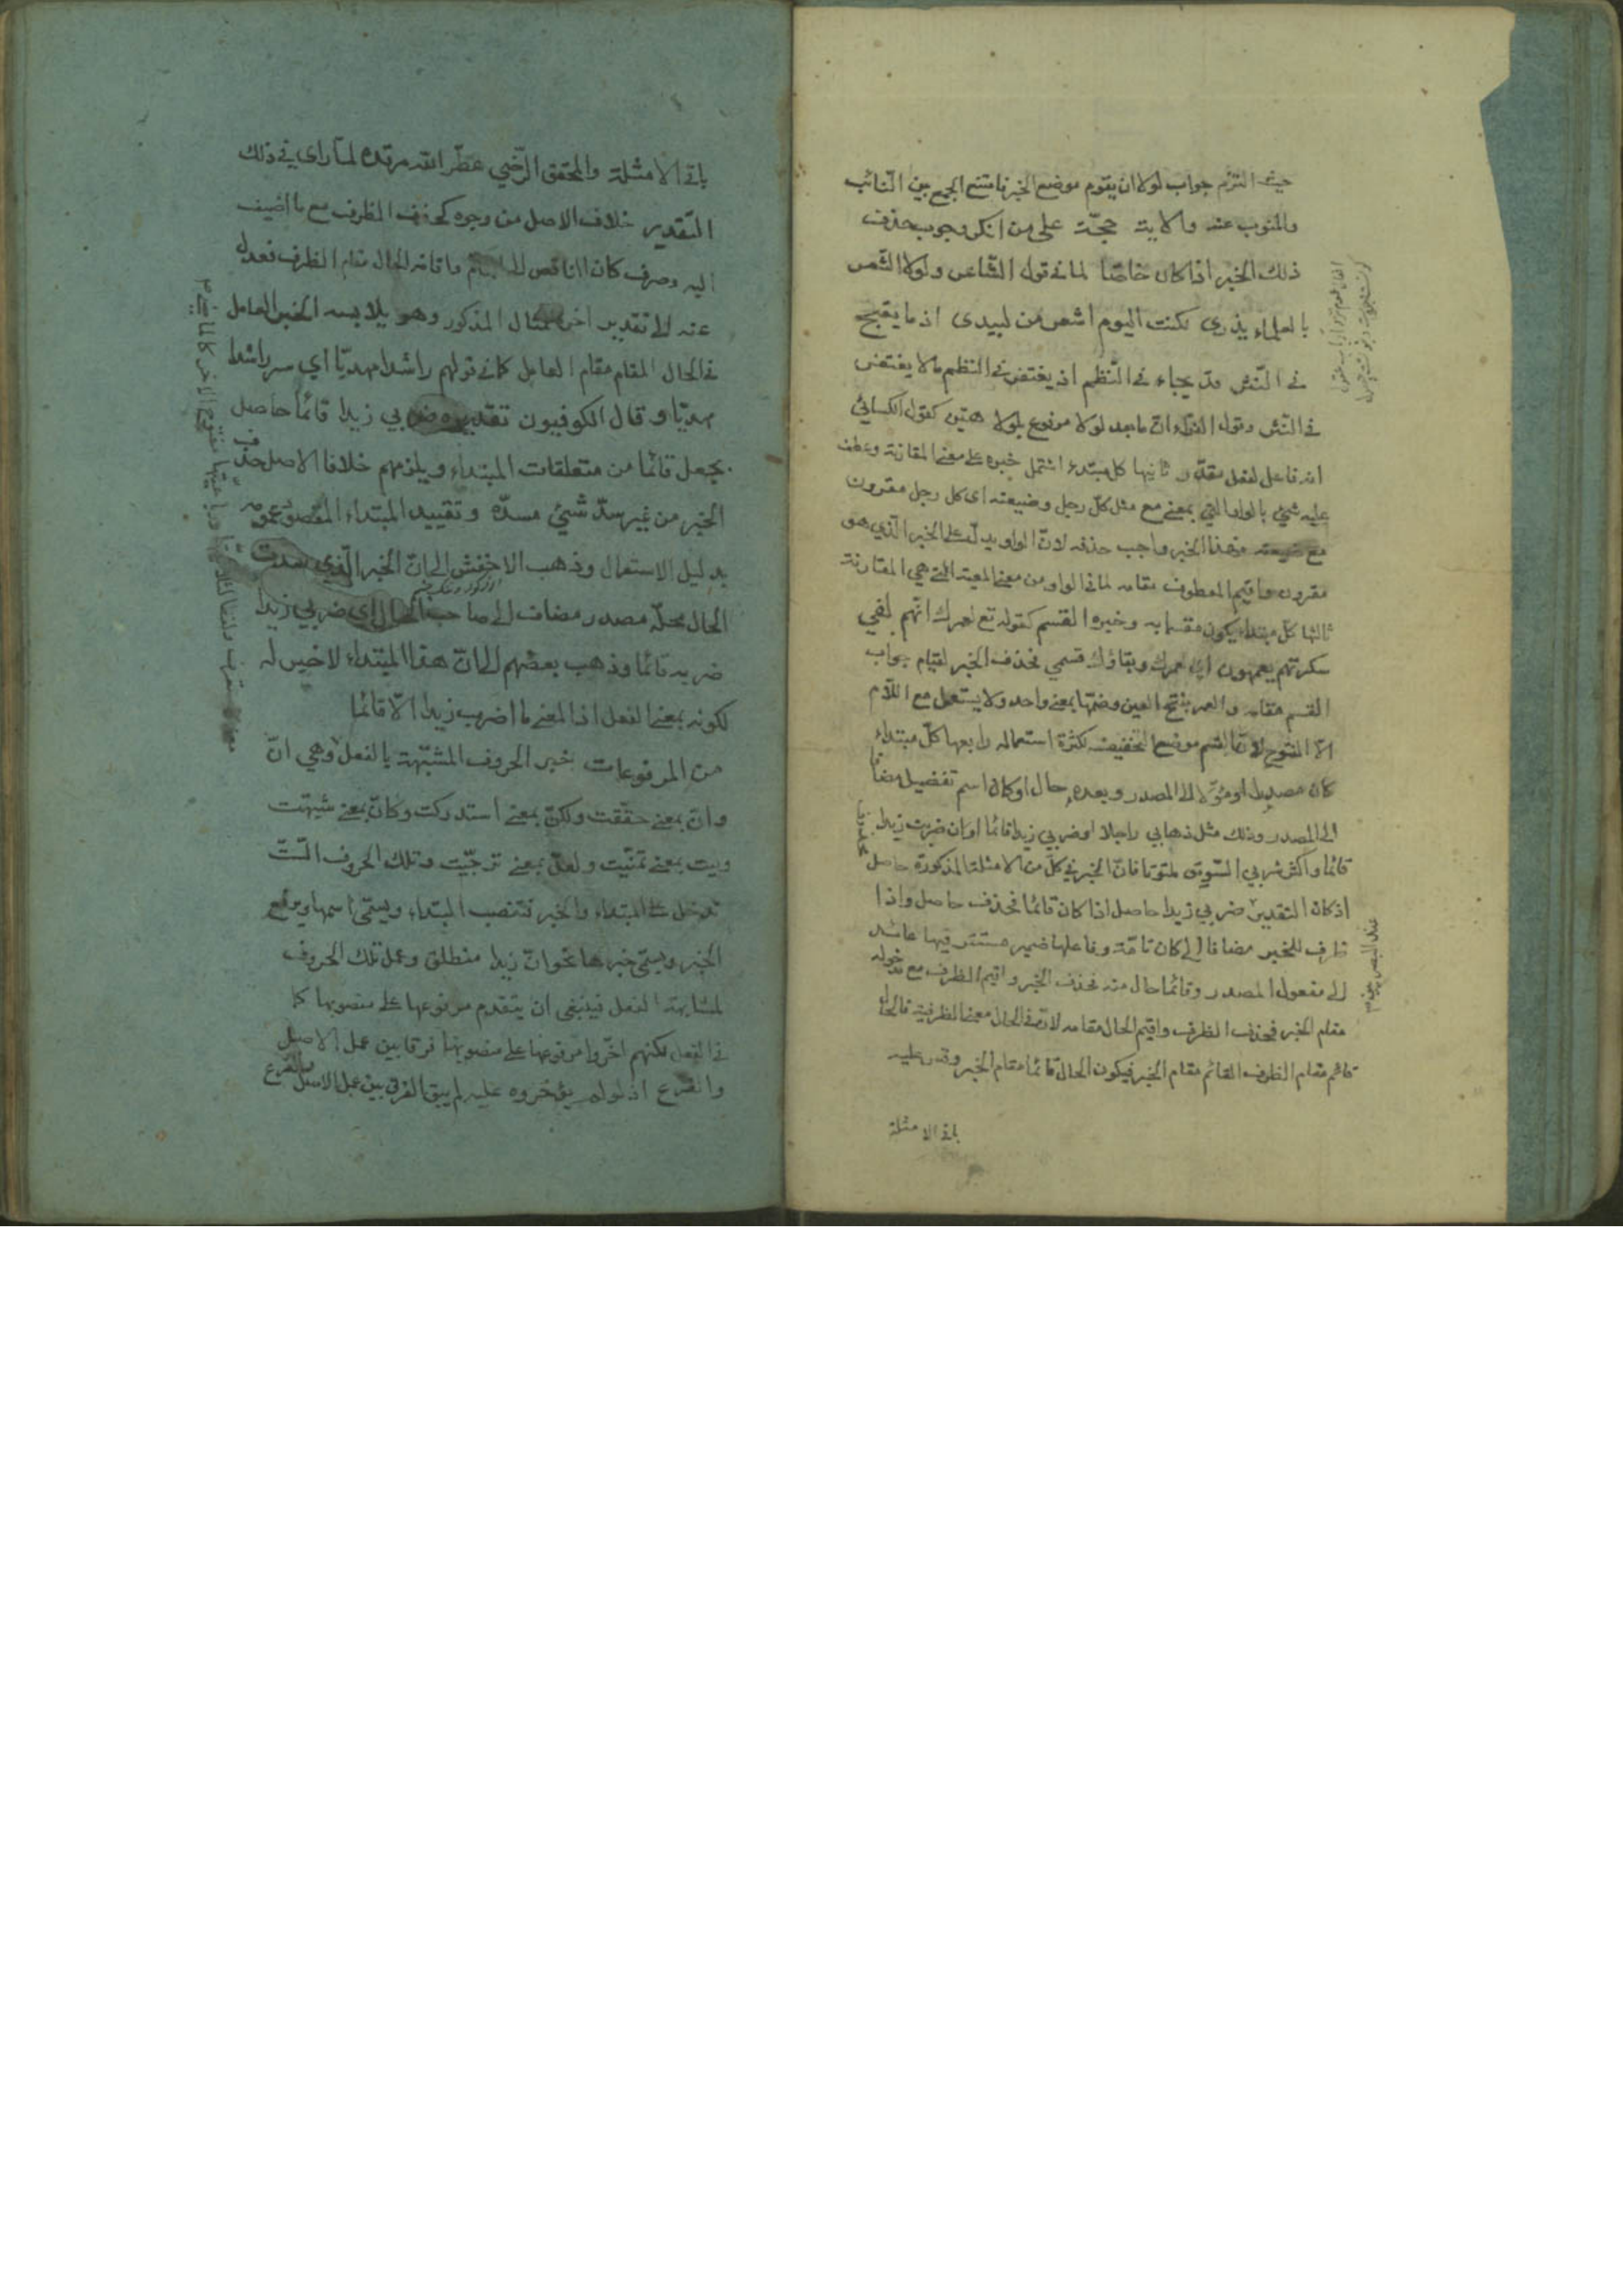 حيث التزم جواب لولا ان يقوم موضع الخبر فامتنع الجمع بين النّائب
والمنوب عنه والاية حجّة على من انكر وجوب حذف
ذلك الخبر اذا كان خاصّا لما في قول الشّاعر ولولا الشّعر
بالعلماء يذري لكنت اليوم اشعر من لبيدى اذ ما يقبح
في النّثر قد يجاء في النّظم اذ يغتفر في النظم ما لا يغتفر
في النّثر وقول الفرّاء انّ ما بعد لولا مرفوع بلولا هيّن كقول الكسائي
انه فاعل لفعل مقدّر و ثانيها كل مبتدء اشتمل خبره على معنى المقارنة وعطف
عليه شيئ بالواو الّتي بمعنى مع مثل كلّ رجل وضيعته اى كل رجل مقرون
مع ضيعته فهذا الخبر واجب حذفه لانّ الواو يدلّ على الخبر الّذي هو
مقرون واقيم المعطوف مقامه لما في الواو من معنى المعية الّتي هي المقارنة
ثالثها كلّ مبتداء يكون مقسما به وخبره القسم كقوله تع لعمرك انّهم لفي
سكرتهم يعمهون اى عمرك وبقاؤك قسمي فحذف الخبر لقيام جواب
القسم مقامه والعمر بفتح العين وضمّها بمعنى واحد ولا يستعمل مع اللّام
الّا المفتوح لانّ القسم موضع التخفيف لكثرة استعماله رابعها كلّ مبتداء
كان مصدرا او مؤوّلا الى المصدر وبعده حال او كان اسم تفضيل مضافا
الى المصدر وذلك مثل ذهابي راجلا او ضربي زيدا قائما او ان ضربت زيدا
قائما واكثر شربي السّويق ملتوتا فانّ الخبر في كلّ من الامثلة المذكورة حاصل
اذ كان التقدير ضربي زيدا حاصل اذا كان قائما فحذف حاصل واذا
ظرف للخبر مضافا الى كان تامّة وفاعلها ضمير مستتر فيها عائد
الى مفعول المصدر وقائما حال منه فحذف الخبر واقيم الظرف مع مدخوله
مقام الخبر فحذف الظرف واقيم الحال مقامه لانّ في الحال معنى الظرفية فالحال
قائم مقام الظرف القائم مقام الخبر فيكون الحال قائما مقام الخبر وقدر عليه
باقي الامثلة
باقي الامثلة والمحقق الرّضي عطّر الله مرقده لمّا راى في ذلك
التّقدير خلاف الاصل من وجوه كحذف الظرف مع ما اضيف
اليه وصرف كان الناقص الى التام واقامة الحال مقام الظرف فعدل
عنه الى تقدير اخر المثال المذكور وهو يلابسه الخبر العامل
في الحال المقام مقام العامل كما في قولهم راشدا مهديّا اي سر راشدا
مهديّا و قال الكوفيون تقديره ضربي زيدا قائما حاصل
بجعل قائما من متعلقات المبتداء ويلزمهم خلافا الاصل حذف
الخبر من غير سدّ شيئ مسدّه و تقييد المبتداء المقصود عمومه
بدليل الاستعمال وذهب الاخفش الى انّ الخبر الّذي سدت
الحال محلّه مصدر مضاف الى صاحب الحال اى ضربي زيدا
ضربه قائما وذهب بعضهم الى انّ هذا المبتداء لا خبر له
لكونه بمعنى الفعل اذ المعنى ما اضرب زيدا الّا قائما
من المرفوعات خبر الحروف المشبّهة بالفعل وهي انّ
وانّ بمعنى حقّقت ولكنّ بمعنى استدركت وكانّ بمعنى شبّهت
وليت بمعنى تمنّيت ولعلّ بمعنى ترجّيت وتلك الحروف السّتّ
تدخل على المبتداء والخبر فتنصب المبتداء ويسمّى اسمها ويرفع
الخبر ويسمّى خبرها نحو انّ زيدا منطلق وعمل تلك الحروف
لمشابهة الفعل فينبغي ان يتقدم مرفوعها على منصوبها كما
في الفعل لكنهم اخّروا مرفوعها على منصوبها فرقا بين عمل الاصيل
والفرع اذ لو لم يؤخروه عليه لم يبق الفرق بين عمل الاصل والفرع